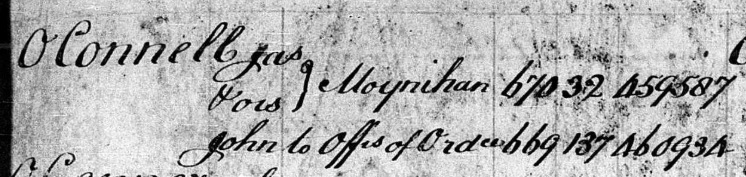 O'Connell Jas
& ors } Moynihan 670 32 459587
John to Offrs of Ordce 669 137 460934